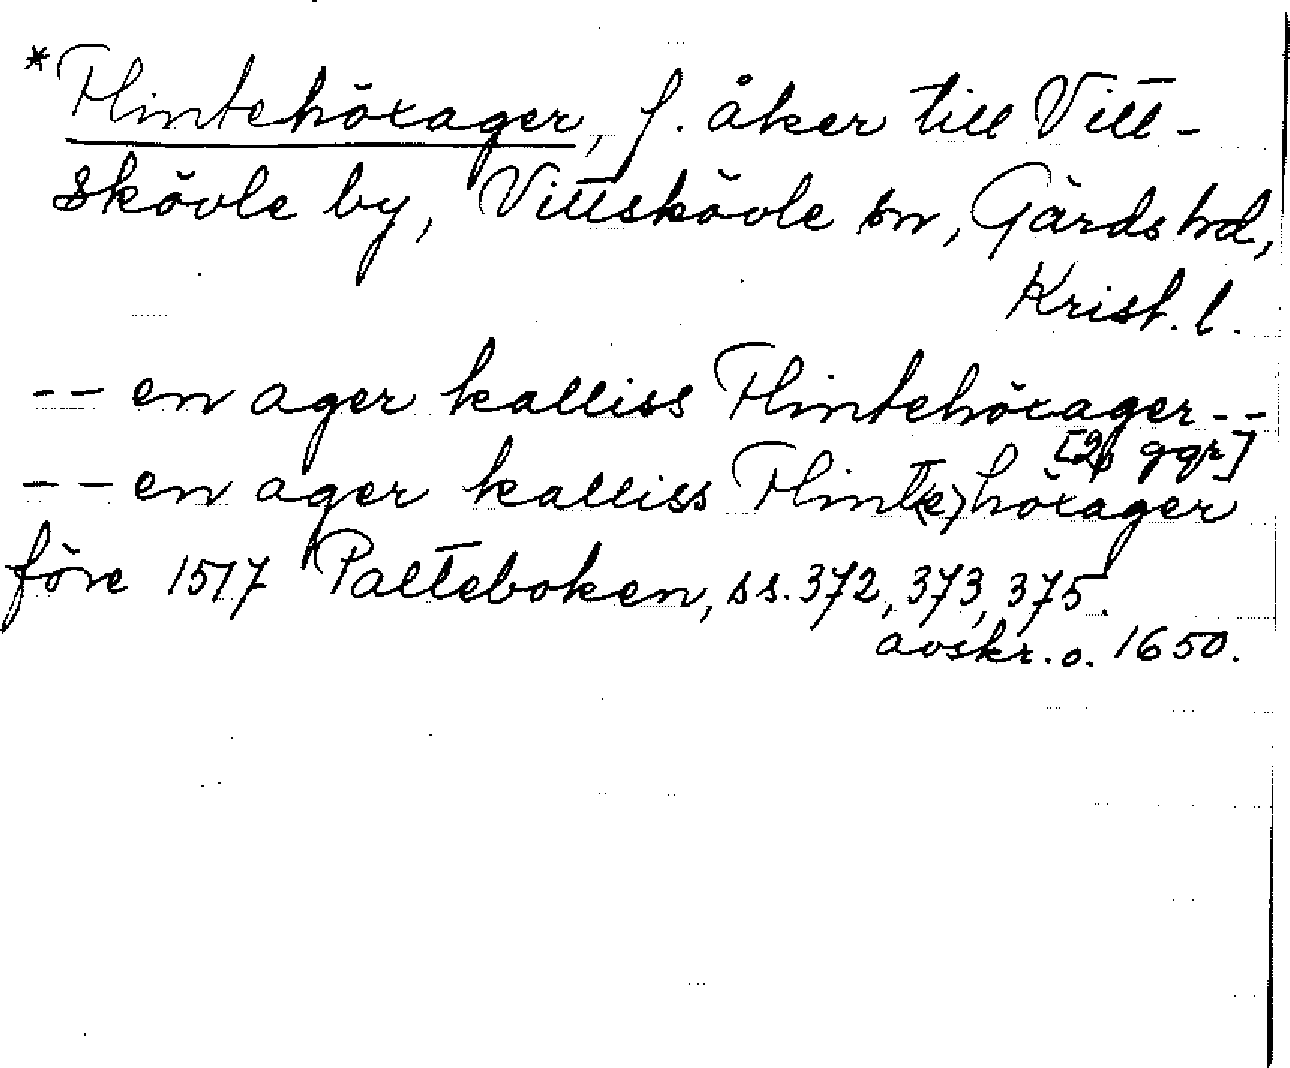 *Flintehöxager, f. åker till Vitt-
skövle by, Vittskövle sn, Gärds hd,
Krist. l.
-- en ager kalliss Flintehöxager --
[2 ggr]
-- en ager kalliss Flint(e)höxager
före 1517 Palteboken, ss. 372, 373, 375.
avskr. o. 1650.